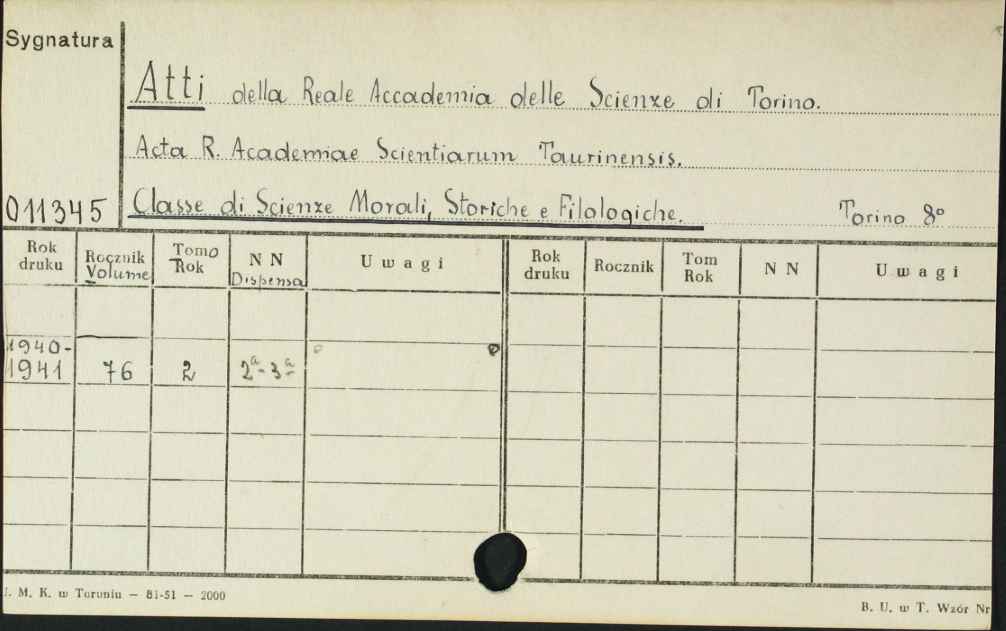 Sygnatura
Atti della Reale Accademia delle Scienze di Torino.
Acta R. Academiae Scientiarum Taurinensis.
011345 Classe di Scienze Morali, Storiche e Filologiche. Torino 8º
Rok druku Rocznik Volume Tomo Rok NN Dispensa Uwagi Rok druku Rocznik Tom Rok NN Uwagi
1940-
1941 76 2 2ª-3ª
J. M. K. w Toruniu — 81-51 — 2000
B. U. w T. Wzór Nr